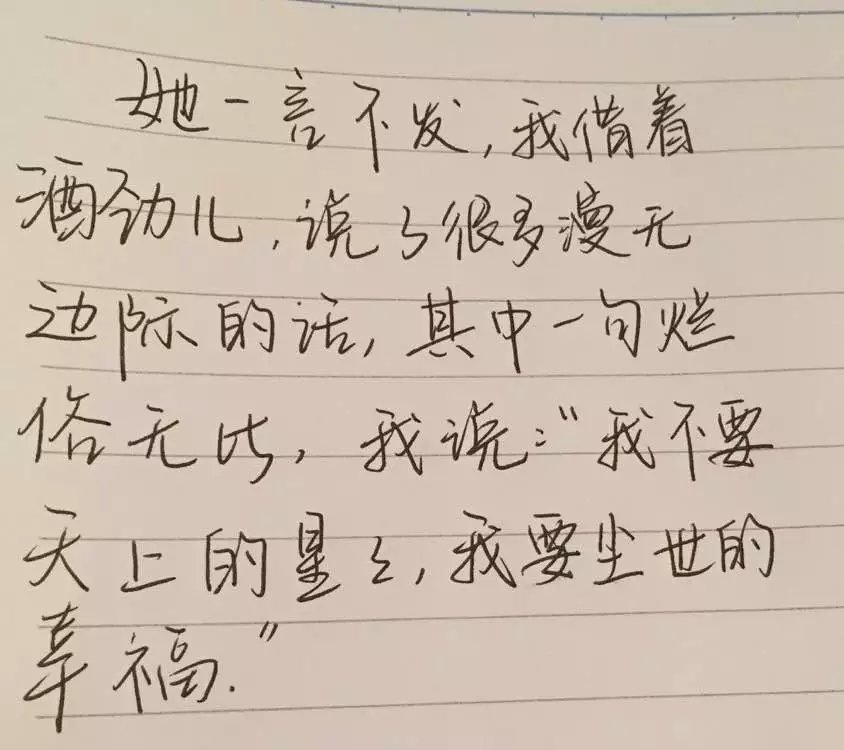 她一言不发,我借着
酒劲儿,说了很多漫无
边际的话,其中一句烂
俗无比,我说:“我不要
天上的星々,我要尘世的
幸福.”